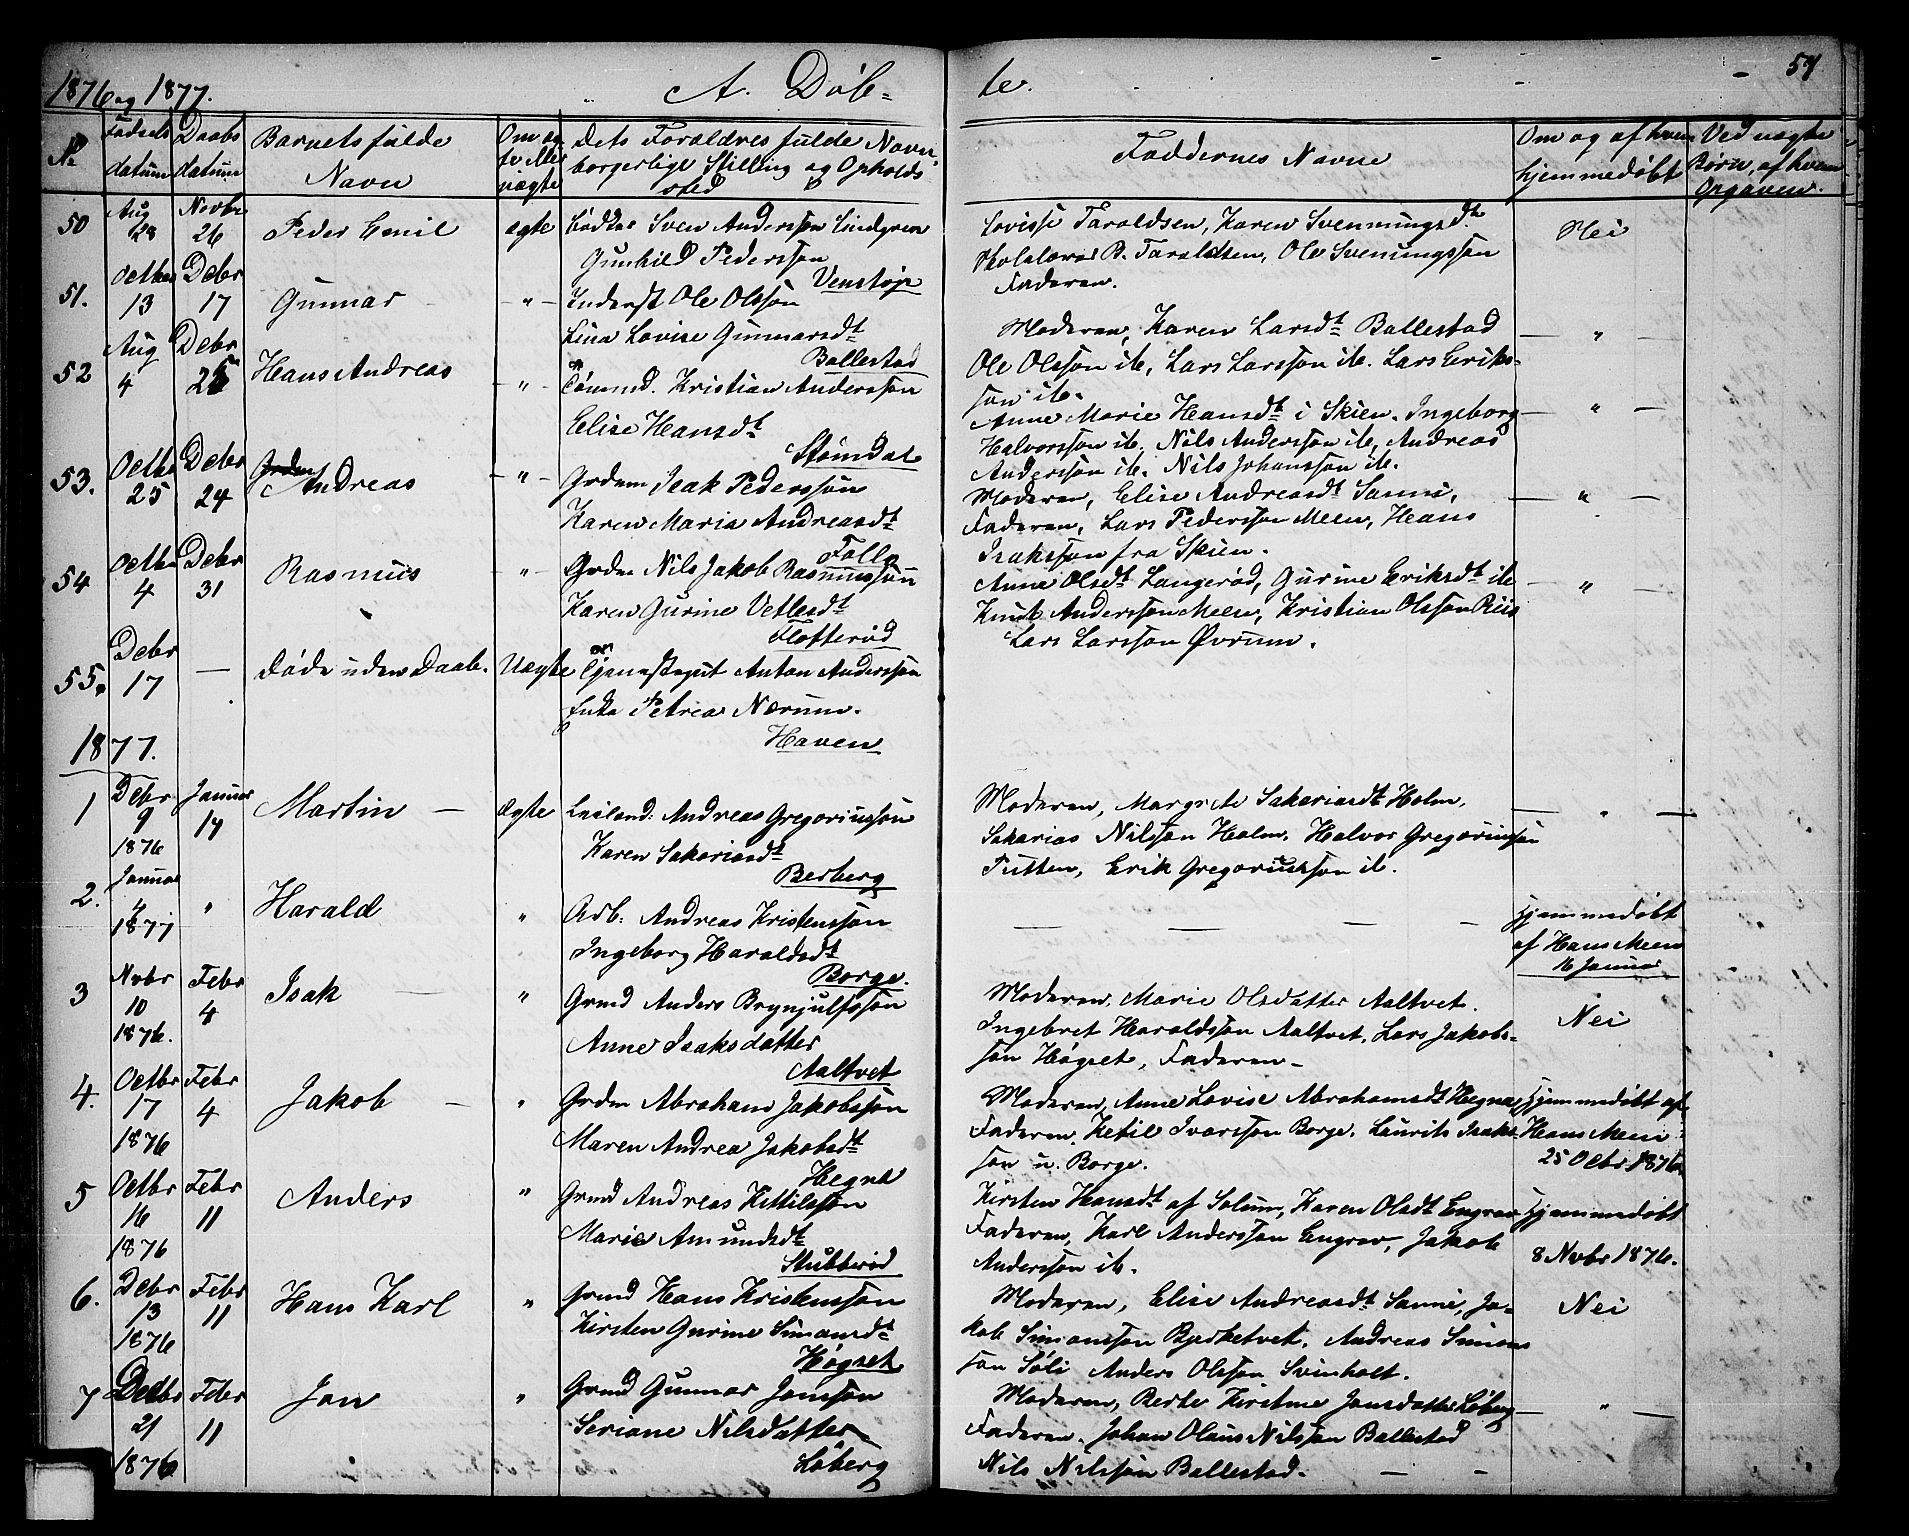 1876 og 1877.
A. Døb-
te.
57
No
Fødsels datum
Daabs datum
Barnets fulde Navn
Om ægte eller uægte
Dets Forældres fulde Navn, borgerlige Stilling og Opholds sted
Faddernes Navne
Om og af hvem hjemmedøbt
Ved uægte Børn, af hvem Opgaven.
50
Aug 28
Novbr 26
Peder Emil
ægte
Bødker Sven Andersson Lindgren
Gunhild Pedersson
Venstøp
Lovisse Taraldsen, Karen Svenningsdt
Skolelærer B. Taraldsen, Ole Svenningssøn
Faderen.
Nei
51.
Octbr 13
Debr 17
Gunnar
- " -
Inderst Ole Olsson
Lina Lovise Gunnarsdt
Ballestad
Moderen, Karen Larsdt Ballestad
Ole Olsson ib, Lars Larsson ib. Lars Eriks-
søn ib.
- " -
52
Aug 4
Debr 25
Hans Andreas
- " -
Tømmd. Kristian Andersson
Elise Hansdt
Strømdal
Anne Marie Hansdt i Skien. Ingeborg
Halvorsson ib, Nils Andersson ib, Andreas
Andersson ib. Nils Johansson ib.
- " -
53.
Octbr 25
Debr 24
Andreas
- " -
Grdm Isak Pedersson
Karen Maria Andreasdt
Falla
Moderen, Elise Andreasdt Sanni,
Faderen, Lars Pedersson Meen, Hans
Isaksson fra Skien.
- " -
54
Octbr 4
Debr 31
Rasmus
- " -
Grdm Nils Jakob Rasmusson
Karen Gurine Vetlesdt
Flotterød
Anne Olsdt Langerød, Gurine Eriksdt ib
Knut Andersson Meen, Kristian Olsson Riis
Lars Larsson Øvrum.
- " -
55.
Debr 17
-
Døde uden Daab.
Uægte
Tjenestegut Anton Andersson
Enke Petrea Nærum.
Haven
1877.
1
Debr 9 1876
Januar 14
Martin -
Ægte
Leiland: Andreas Gregoriusson
Karen Sakariasdt
Berberg
Moderen, Margrete Sakariasdt Holm,
Sakarias Nilsson Holm. Halvor Gregoriusson
Tutten, Erik Gregoriusson ib.
- " -
2.
Januar 4 1877
"
Harald
"
Arb: Andreas Kristensson
Ingeborg Haraldsdt
Borge.
- - - -
Hjemmedøbt
af Hans Meen
16 Januar
3
Nvbr 10 1876.
Febr 4
Isak -
"
Grmd Anders Brynjulfsson
Anne Isaksdatter
Aaltvet
Moderen. Marie Olsdatter Aaltvet.
Ingebret Haraldsson Aaltvet, Lars Jakobs-
søn Høgset, Faderen-
Nei
4.
Octbr 17 1876
Febr 4
Jakob -
"
Grdm Abraham Jakobsson
Maren Andrea Jakobsdt
Hegna
Moderen, Anne Lovise Abrahamsdt Hegna,
Faderen. Ketil Ivarsson Borge. Laurits Isaks-
søn n. Borge.
Hjemmedøbt af
Hans Meen
25 Ocbr 1876
5
Octbr 16 1876
Febr 11
Anders
"
Grmd Andreas Kittilsson
Marie Amundsdt
Stubberød
Kirsten Hansdt af Solum, Karen Olsdt Engrav
Faderen, Karl Andersson Engrav, Jakob
Andersson ib.
Hjemmedøbt
8 Nvbr 1876.
6.
Debr 13 1876
Febr 11
Hans Karl
"
Grmd Hans Kristensson
Kirsten Gurine Simonsdt
Høgset
Moderen, Elise Andreasdt Sanni, Ja-
kob Simonsson Bjerketvet. Andreas Simons
søn Søli Anders Olsson Svinholt.
Nei
7
Decbr 21 1876
Febr 11
Jan
"
Grmd Gunnar Jansson
Seriane Nilsdatter
Løberg
Moderen, Berte Kirstine Jansdatter Løberg
Faderen. Johan Olaus Nilsson Ballestad
Nils Nilsson Ballestad. - -
- " -